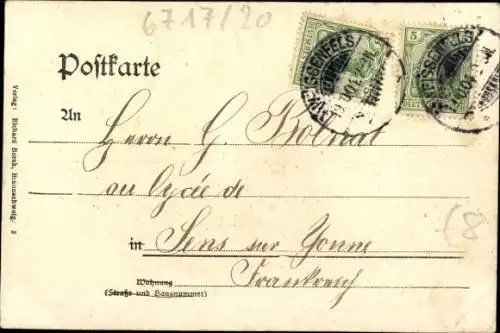 6717/20
WEISSENFELS
5
WEISSENFELS
Postkarte
An
Herrn G.
au lycée de
in Sens sur Yonne
Frankreich
Wohnung
(Straße und Hausnummer)
(8
Verlag: Richard Borek, Braunschweig. 2